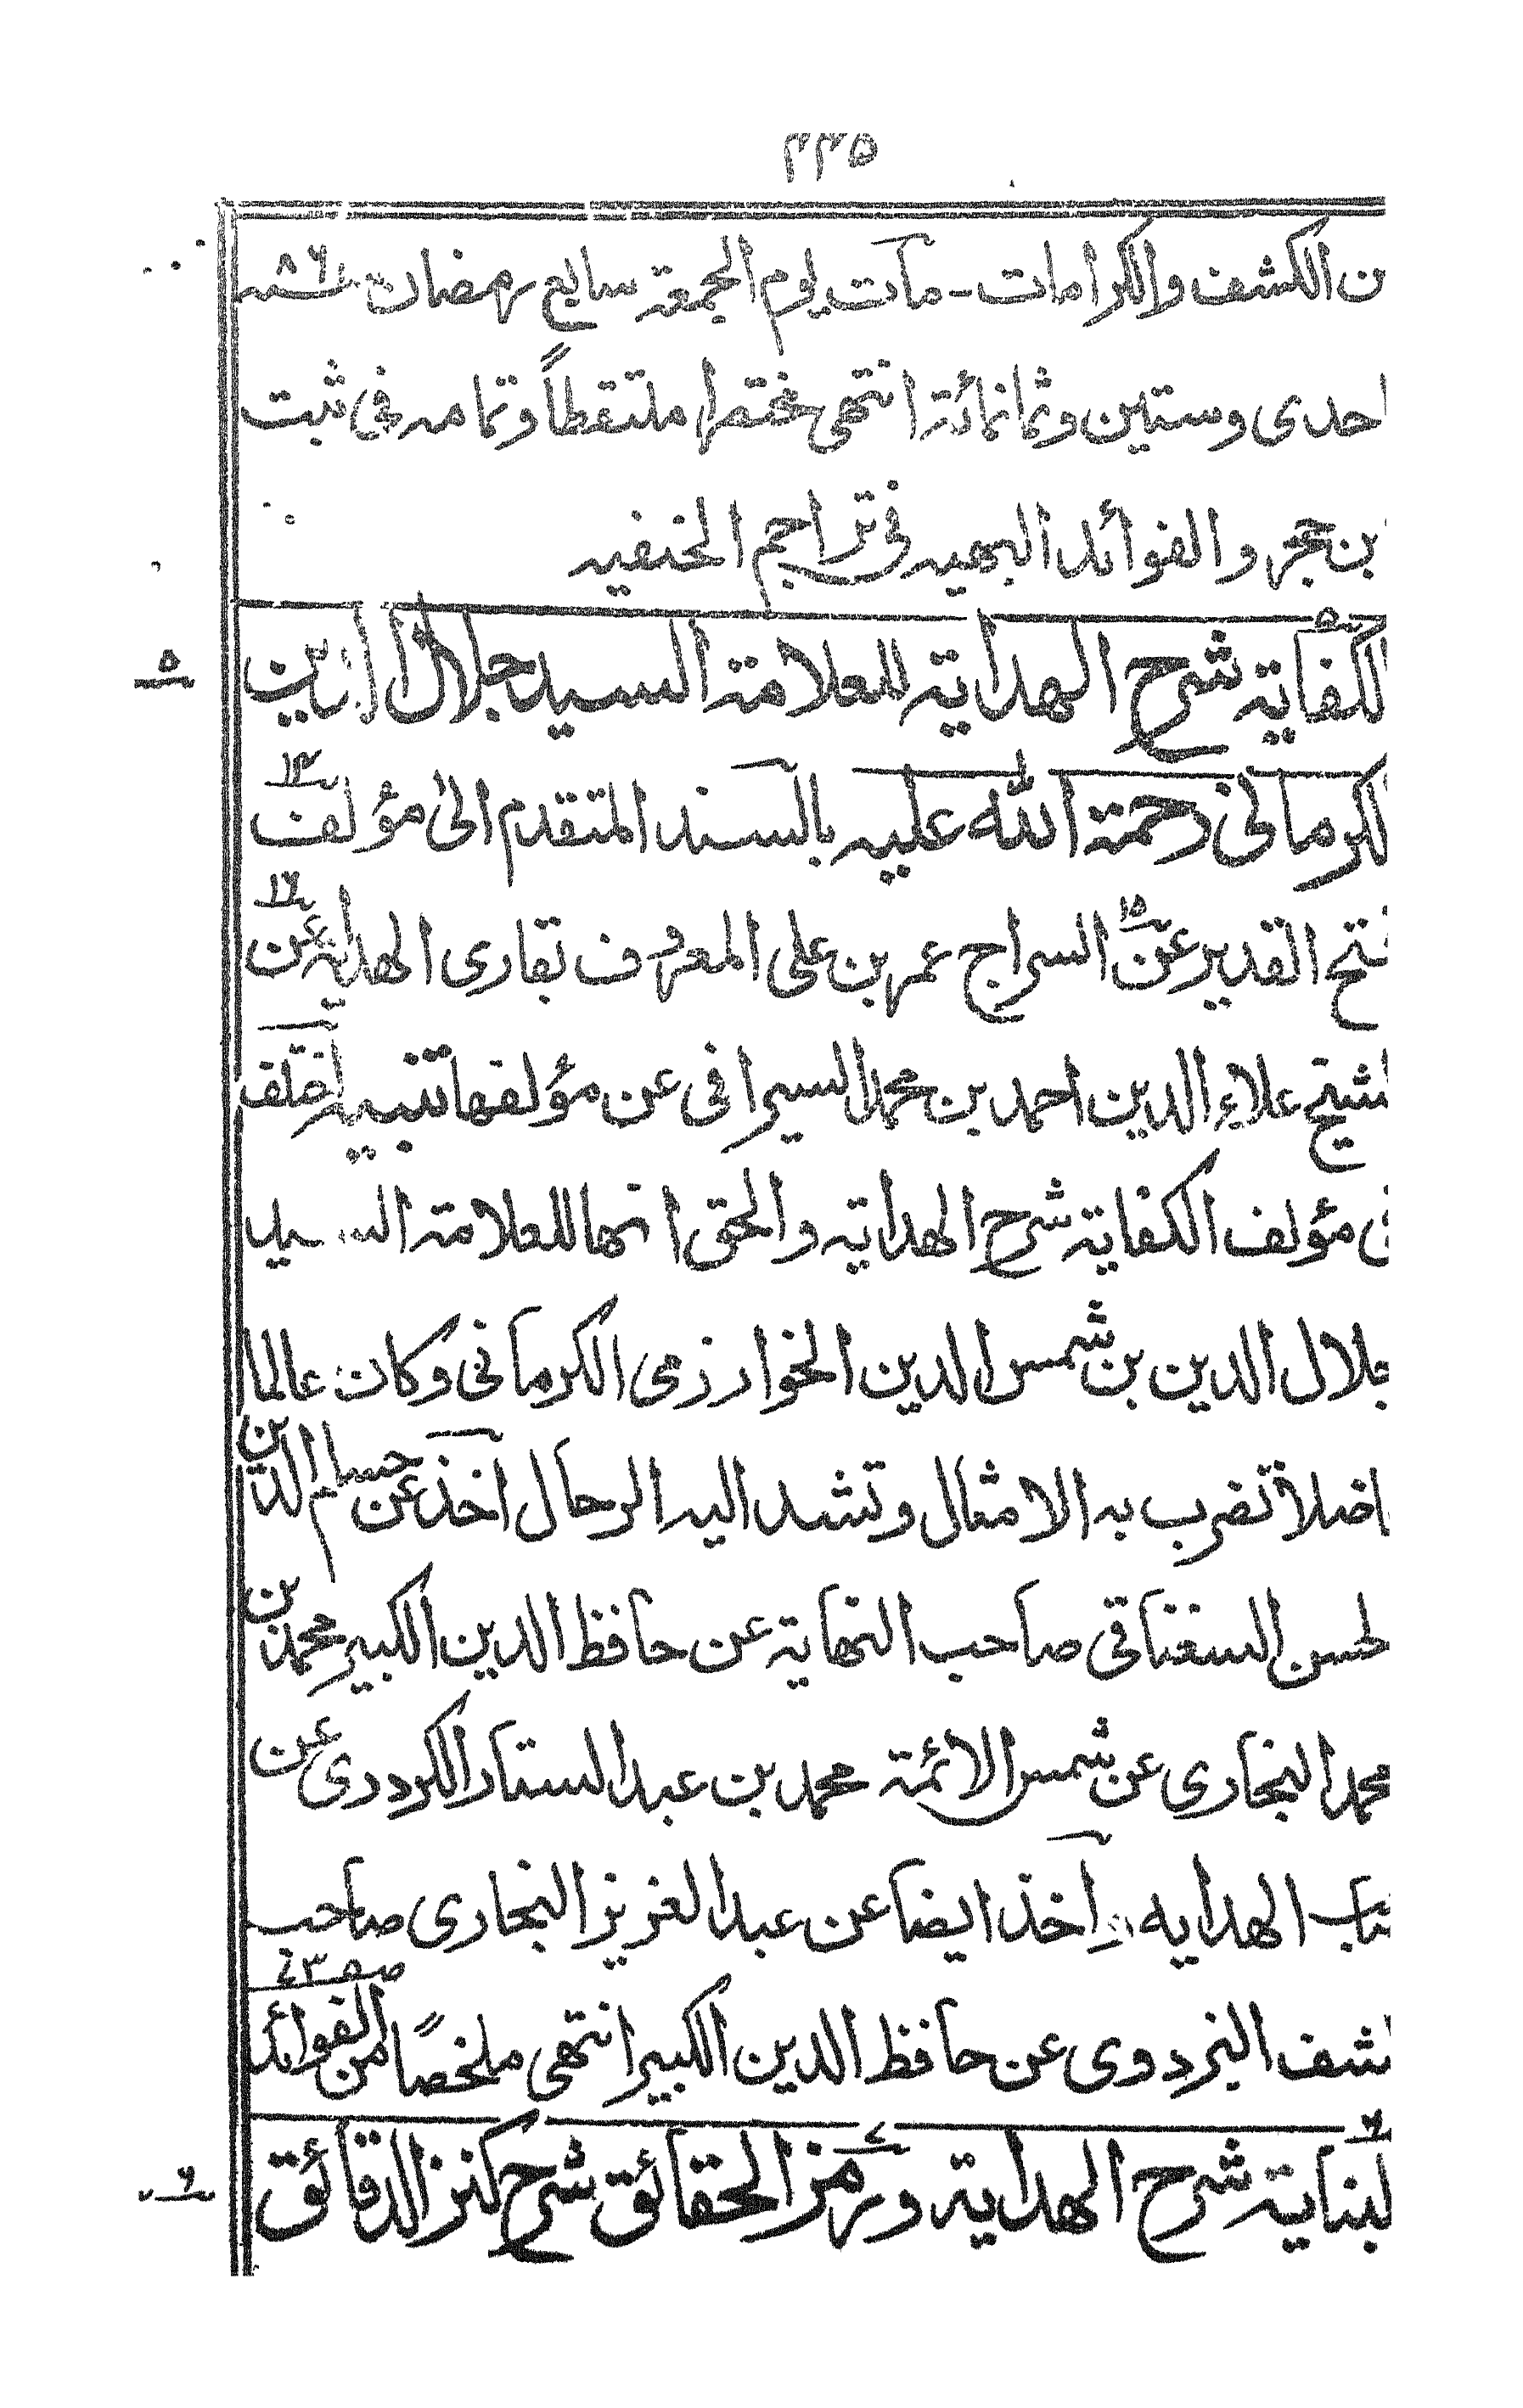 ٣٣٥
ن الكشف والكرامات - مات يوم الجمعة سابع رمضان سنة ٨٦١
احدى وستين وثمانمائة انتهى مختصرا ملتقطاً وتمامه فى ثبت
بن حجر والفوائد البهيه فى تراجم الحنفيه
لكفاية شرح الهداية للعلامة السيد جلال الدين
٥
لكرمانى رحمة الله عليه بالسند المتقدم الى مؤلف
١٤
فتح القدير عن السراج عمر بن على المعروف بقارى الهداية عن
١٥ ١٦
لشيخ علاء الدين احمد بن محمد السيرافى عن مؤلفها تنبيه اختلف
فى مؤلف الكفاية شرح الهداية والحق انها للعلامة السيد
جلال الدين بن شمس الدين الخوارزمى الكرمانى وكان عالما
اضلا تضرب به الامثال وتشد اليه الرحال اخذ عن حسام الدين
لحسن السغناقى صاحب النهاية عن حافظ الدين الكبير محمد بن
محمد البخارى عن شمس الائمة محمد بن عبد الستار الكردرى عن
تاب الهدايه اخذ ايضا عن عبد العزيز البخارى صاحب
كشف البزدوى عن حافظ الدين الكبير انتهى ملخصًا من الفوائد
لبناية شرح الهداية ورمز الحقائق شرح كنز الدقائق
٦